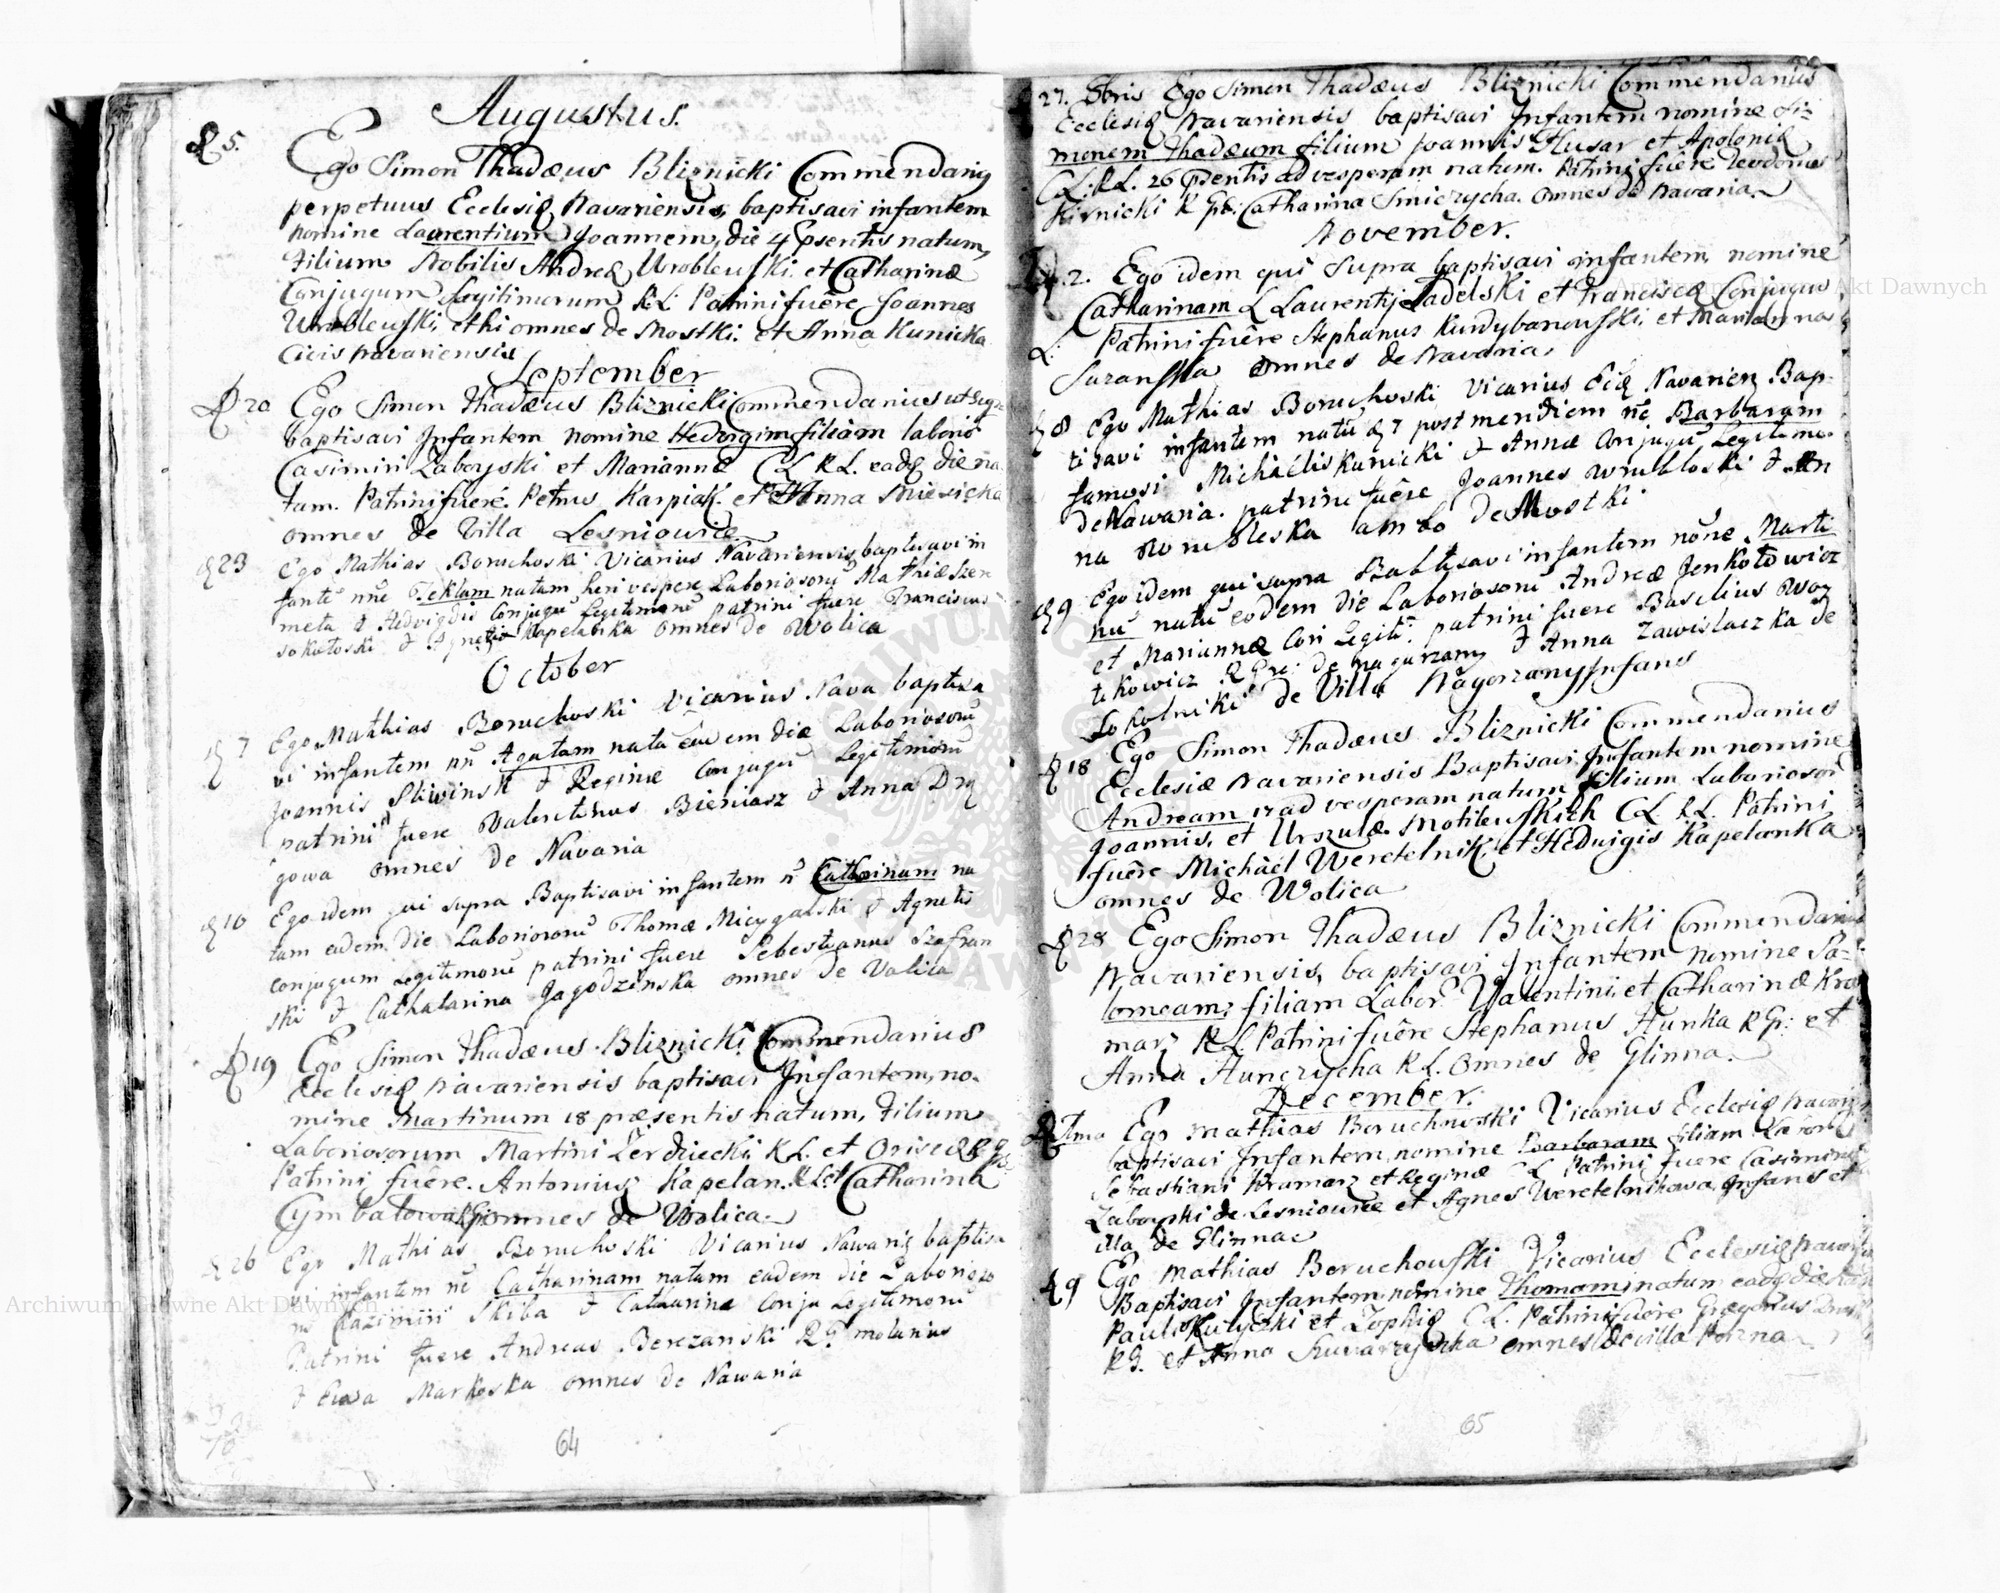 Augustus.
D 5. Ego Simon Thadæus Bliznicki Commendarius
perpetuus Ecclesię Navariensis, baptisavi infantem
nomine Laurentium Joannem, die 4 psentis natum,
Filium Nobilis Andreę Wroblewski et Catharinæ
Conjugum Legitimorum RL. Patrini fuêre Joannes
Wroblewski, ethi omnes de Mostki. et Anna Kunicka
Civis Navariensis
September
D 20 Ego Simon Thadæus Bliznicki Commendarius ut supra
baptisavi Infantem nomine Hedvigim filiam laborio
Casimiri Zaboyski et Mariannæ CL RL. eadę die na
tam. Patrini fuêre Petrus Karpiak. et Anna Miesicka
omnes de Villa Lesniowice
d 23 Ego Mathias Boruchoski Vicarius Navariensis baptisavi in
fantē nñe Teklam natam heri vespere Laboriosorū Mathiæ Szere
meta & Hedvigdis Conjugū Legitimorū patrini fuere Franciscus
sokołoski & Agnetis Kapelanka omnes de Wolica
October
d 7 Ego Mathias Boruchoski Vicarius Nava baptiza
vi infantem nñ Agatam nata eadem die Laboriosorū
Joannis Sliwinski & Reginæ Conjugū Legitimorū
patrini fuere Valentinus Bieniasz & Anna Drą
gowa omnes de Navaria
d 10 Ego idem qui supra Baptisavi infantem ñ Catharinam na
tam eadem die Laboriosorū Thomæ Micygalski & Agnetis
conjugum Legitimorū patrini fuere Sebestianus Szafran
ski & Cathatarina Jagodzinska omnes de Volica
D 19 Ego Simon Thadæus Bliznicki Commendarius
Ecclesię Navariensis baptisavi Infantem, no-
mine Martinum 18 præsentis natum, Filium
Laboriosorum Martini Zerdziecki RL. et
Patrini fuêre. Antonius Kapelan. RL et Catharina
Cymbalowa omnes de Wolica
d 26 Ego Mathias Boruchoski Vicarius Nawarię baptisa
vi infantem nñ Catharinam natam eadem die Laborioso
Kazimiri Skiba & Catharinæ Conju Legitimorū
Patrini fuere Andreas Berezanski RG molarius
& Ewa Markoska omnes de Nawaria
64
27. 8bris Ego Simon Thadæus Bliznicki Commendarius
Ecclesię Navariensis baptisavi Infantem nomine Si=
monem Thadæum filium Joannis Husar et Apolonię
CL. RL. 26 psentis ad vesperam natum. Patrini fuêre
RGr. Catharina Smiczycha. omnes de Navaria
November.
D. 2. Ego idem qui supra baptisavi infantem, nomine
Catharinam L Laurentij Sadelski et Franciscę Conjugus
L. Patrini fuêre Stephanus Kurdybanowski, et Marianna
omnes de Navaria
d 8 Ego Mathias Boruchoski Vicarius Navarien Bap
tisavi infantem natū d 7 post meridiem nñe Barbaram
famosi Michaelis Kunicki & Annæ Conjugū Legitimo
de Nawaria. patrini fuêre Joannes Wrubloski & An
na Wrubleska ambo de Mostki
d 9 Ego idem qui supra Babtisavi infantem nóne Marti
nū natū eodem die Laboriosorū Andreæ Jenkotowicz
et Mariannæ Con Legiti: patrini fuere Basilius Woy
tkowicz RGre: de nagurzany & Anna Zawislaczka de
Sokolniki de Villa Nagorzany Infans
D 18 Ego Simon Thadæus Bliznicki Commendarius
Ecclesiæ Navariensis Baptisavi Infantem nomine
Andream 17 ad vesperam natum filium Laboriosor
Joannis, et Urszulæ Motilewskich CL RL. Patrini
fuêre Michael Weretelnik et Hedvigis Kapelanka
omnes de Wolica
D 28 Ego Simon Thadæus Bliznicki Commendarius
Navariensis, baptisavi Infantem nomine Sa-
lomeam, filiam Labor Valentini, et Catharinæ Kra
marz RL Patrini fuêre Stephanus Hunka RGr: et
Anna Hunczycha RL. omnes de Glinna.
December.
D 1ma Ego Mathias Boruchowski Vicarius Ecclesię Navarię
baptisavi Infantem, nomine Barbaram filiam Labor
Sebastiani Kramarz et Reginæ CL Patrini fuere Casimirus
Zaboyski de Lesniowice et Agnes Weretelnikowa, Infans et
illa de Glinna
d 9 Ego Mathias Boruchowski Vicarius Ecclesię Navarię
Baptisavi Infantem nomine Thomam natum eadę die
Pauli Kulyczki et Zophię CL. Patrini fuere Gregorius
RG. et Anna omnes de villa Porzna
65
Archiwum Główne Akt Dawnych
Archiwum Główne Akt Dawnych